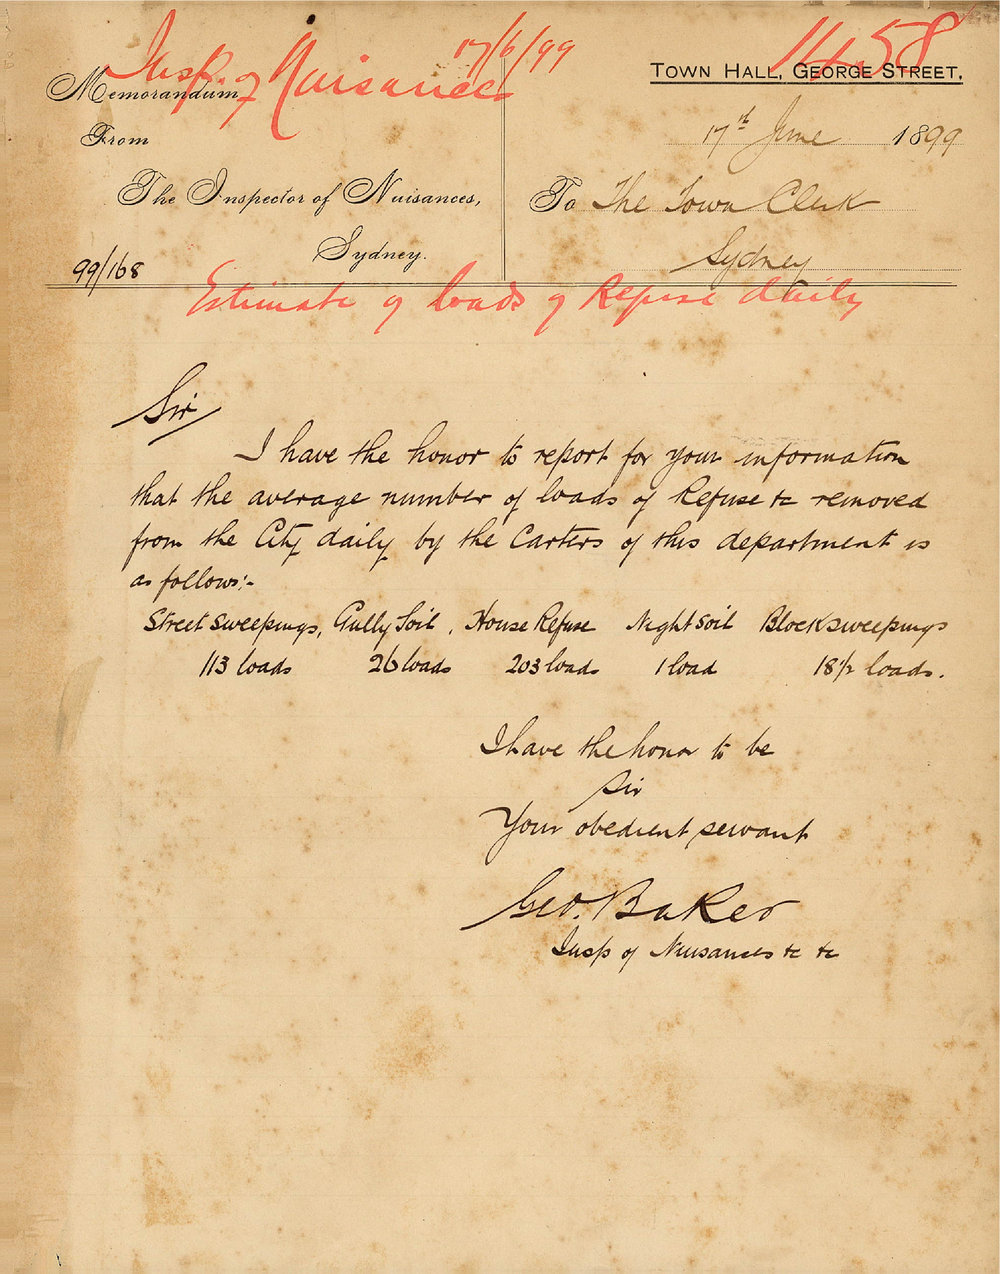 Insp. of Nuisances
17/6/99
1458
TOWN HALL, GEORGE STREET,
Memorandum
From
The Inspector of Nuisances,
Sydney.
99/168
17th June 1899
To The Town Clerk
Sydney
Estimate of loads of Refuse daily
Sir
I have the honor to report for your information
that the average number of loads of Refuse &c removed
from the City daily by the Carters of this department is
as follows:-
Street Sweepings, Gully Soil, House Refuse Night Soil Blocksweepings
113 loads 26 loads 203 loads 1 load 18 1/2 loads.
I have the honor to be
Sir
Your obedient servant
Geo. Baker
Insp of Nuisances &c &c